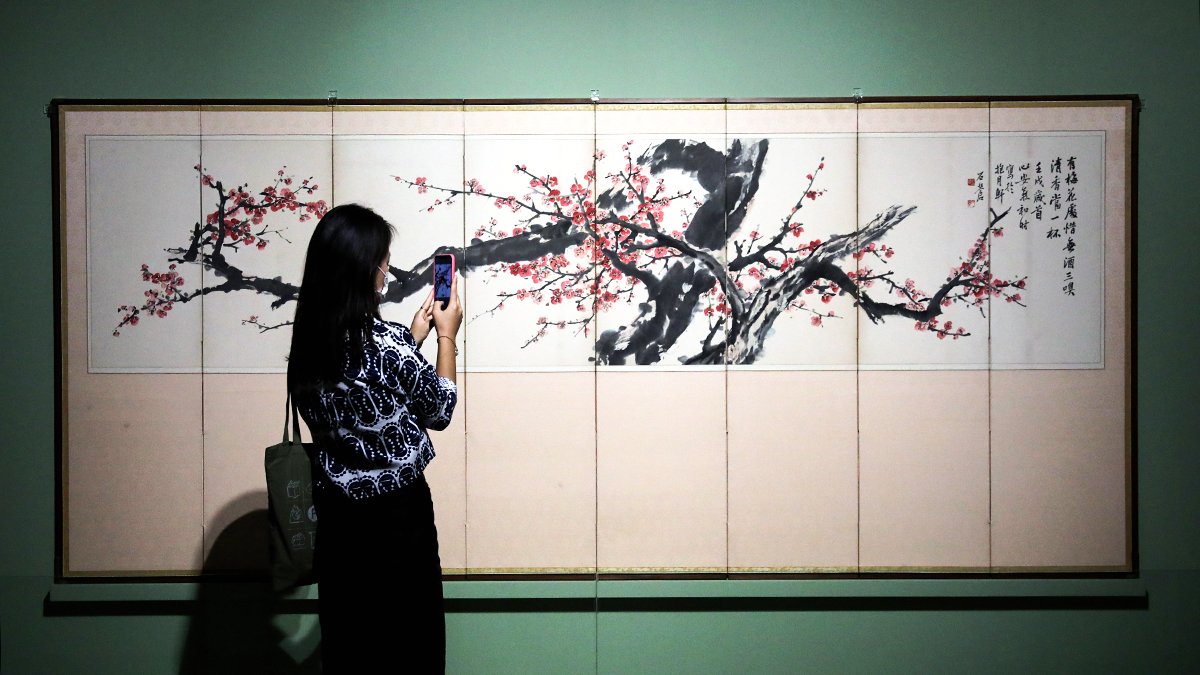 有梅花處惜無酒三嗅
清香當一杯
壬戌歲首
心安氣和时
寫於
月軒